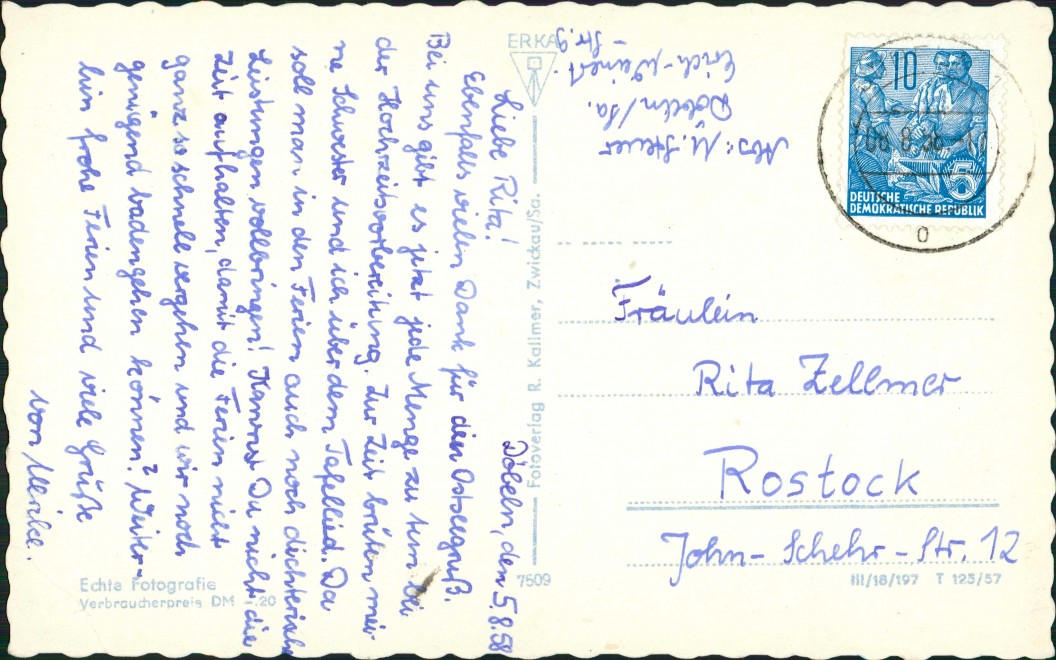 Döbeln, den 5.8.58
Liebe Rita!
Ebenfalls vielen Dank für den Ostseegruß.
Bei uns gibt es jetzt jede Menge zu tun bei
der Hochzeitsvorbereitung. Zur Zeit brüten mei-
ne Schwester und ich über dem Tafellied. Da
soll man in den Ferien auch noch dichterische
Leistungen vollbringen! Kannst Du nicht die
Zeit aufhalten, damit die Ferien nicht
ganz so schnell vergehen und wir noch
genügend badengehen können? Weiter-
hin frohe Ferien und viele Grüße
von Ulrike.
Echte Fotografie
Verbraucherpreis DM -.20
ERKA
Fotoverlag R. Kallmer, Zwickau/Sa.
7509
Abs.: U. Steuer
Döbeln/Sa.
Erich-Weinert-
Str. 9
10
5
DEUTSCHE
DEMOKRATISCHE REPUBLIK
Fräulein
Rita Zellmer
Rostock
John-Schehr-Str. 12
III/18/197 T 125/57